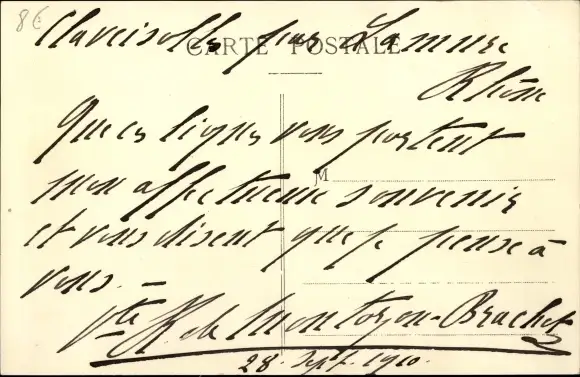 8€
Claveisolles par Lamure
CARTE POSTALE
Rhône
Que ces lignes vous portent
M
mon affectueux souvenir
et vous disent que je pense à
vous. —
Vte H. de Montozon-Brachet
28. Sept. 1910.